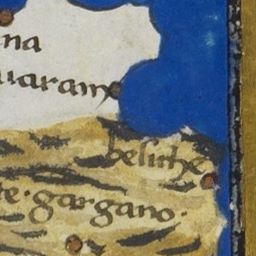 na
uaram
beliche
te · gargano ·